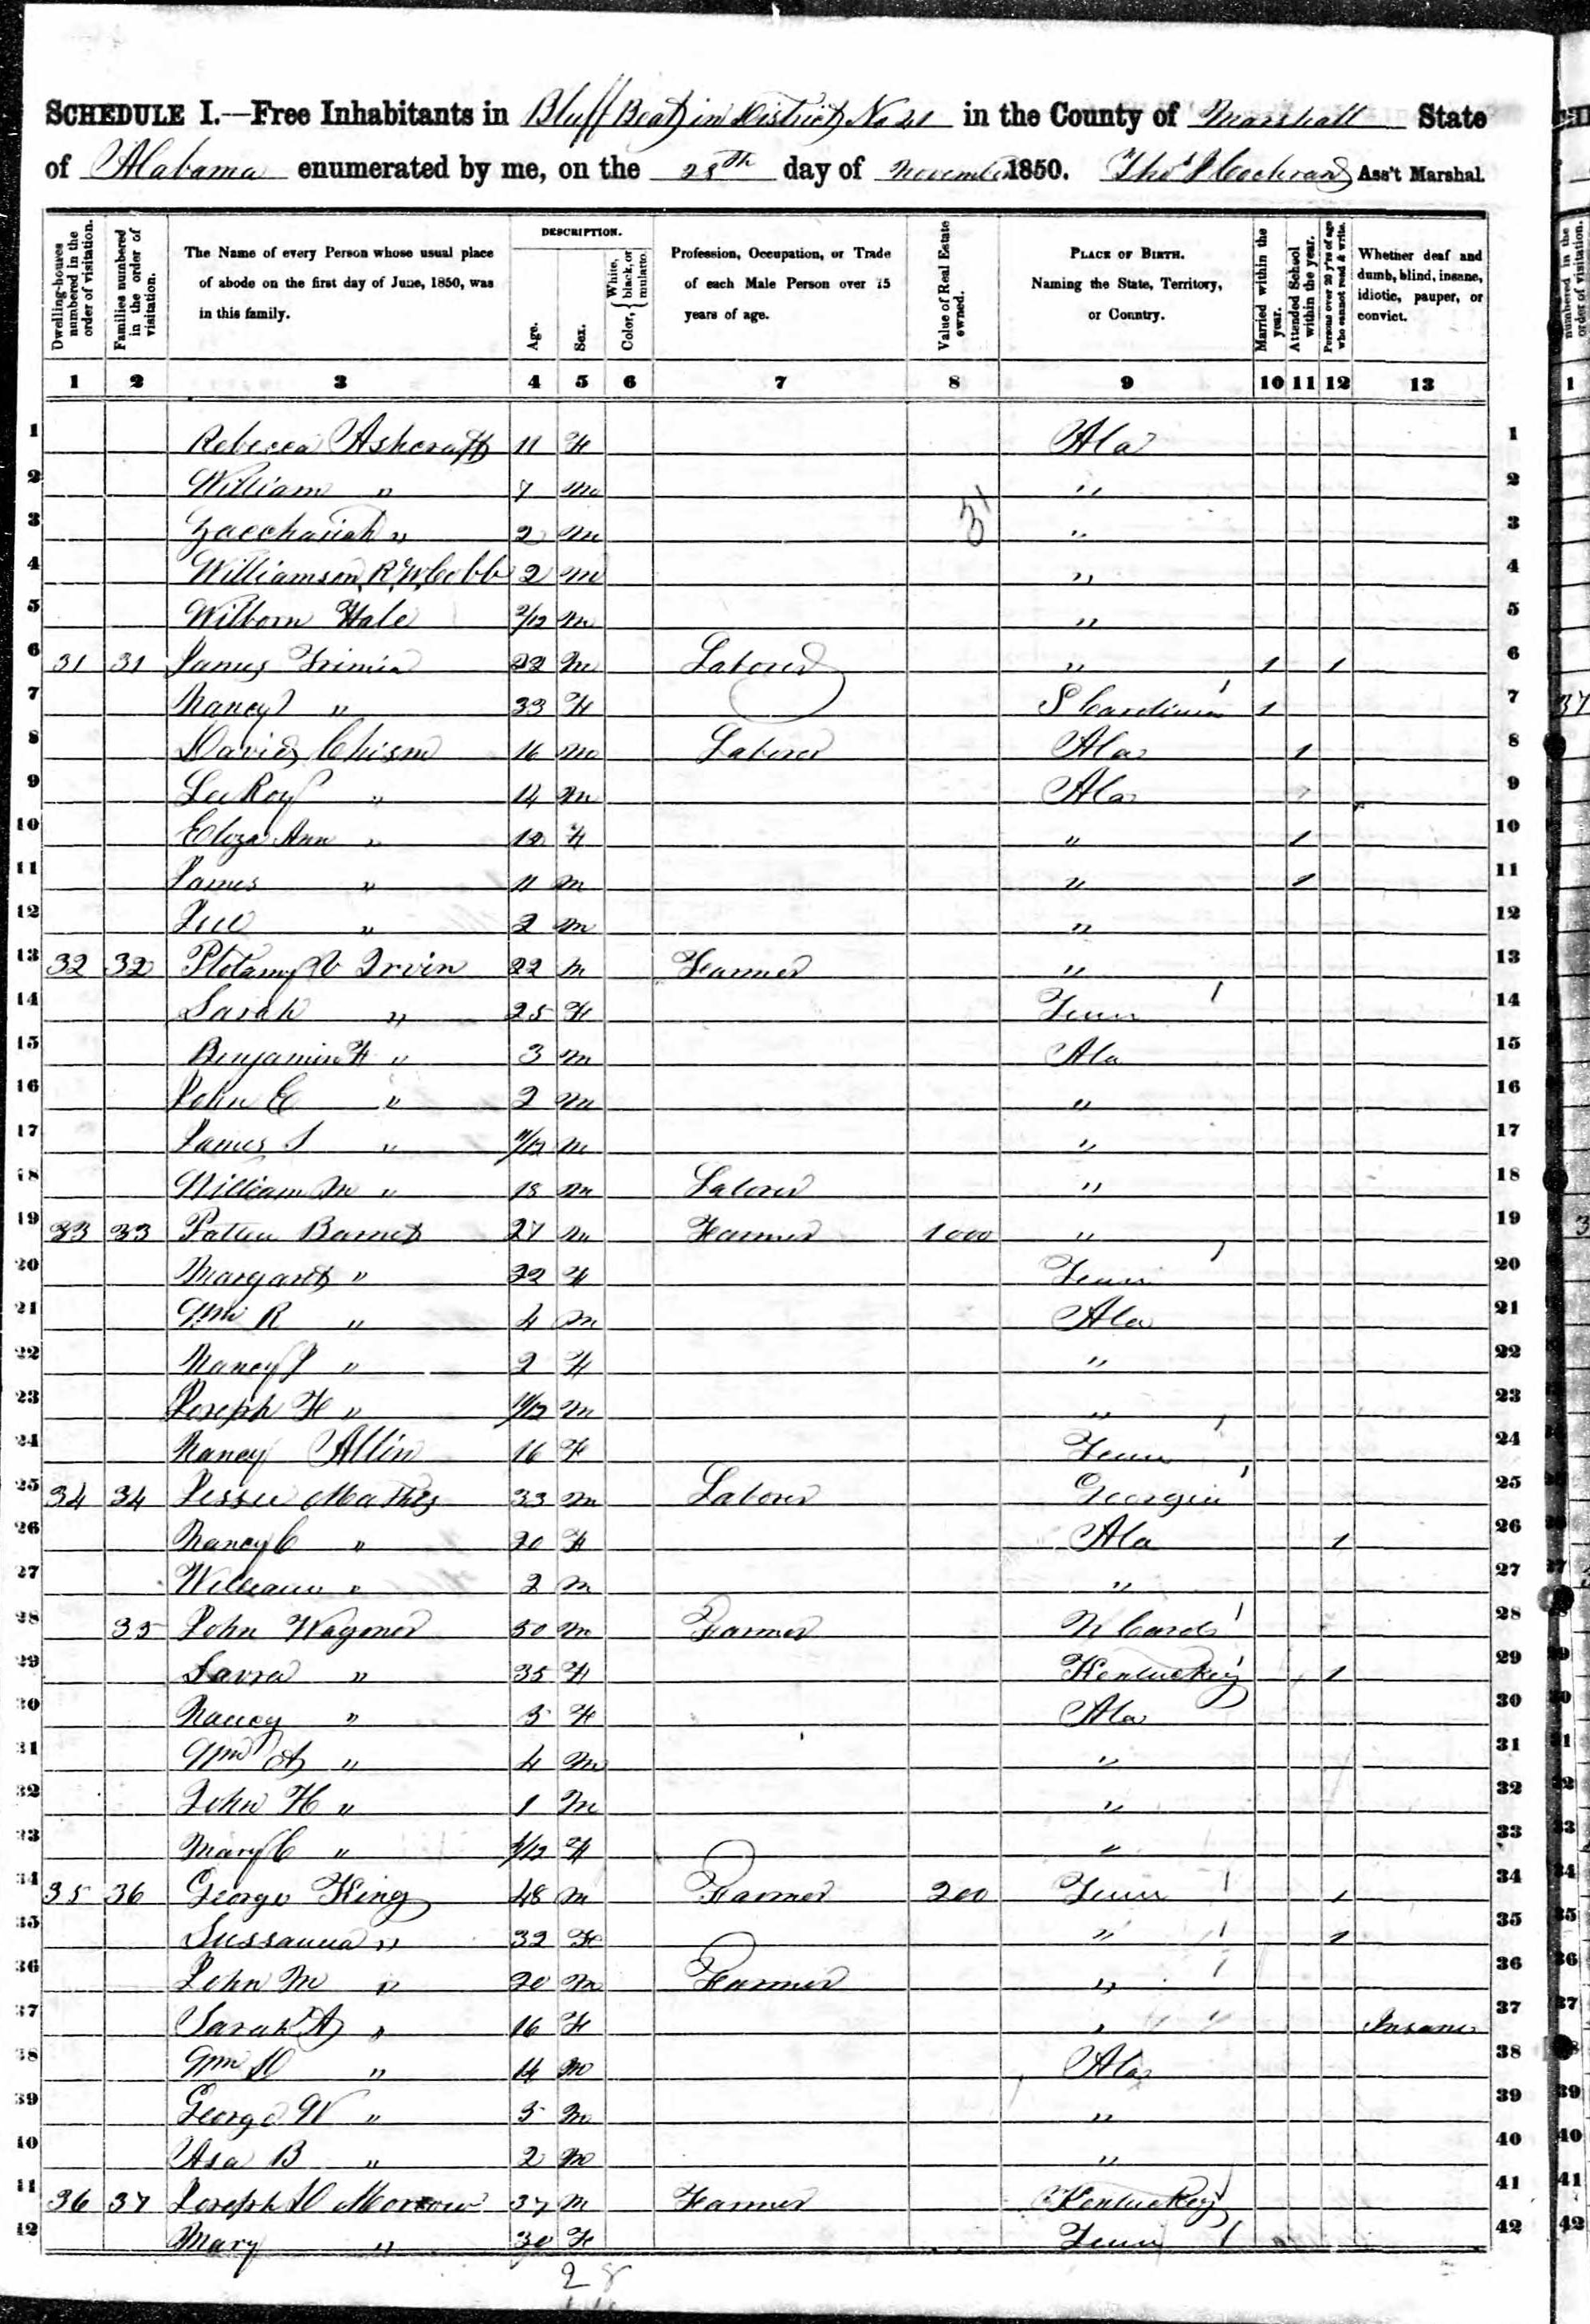 SCHEDULE I.—Free Inhabitants in Bluff Beat in District No 21 in the County of Marshall State
of Alabama enumerated by me, on the 28th day of November 1850. Thos J Cochran Ass't Marshal.
Dwelling-houses numbered in the order of visitation.
Families numbered in the order of visitation.
The Name of every Person whose usual place of abode on the first day of June, 1850, was in this family.
DESCRIPTION.
Age.
Sex.
Color, { White, black, or mulatto.
Profession, Occupation, or Trade of each Male Person over 15 years of age.
Value of Real Estate owned.
PLACE OF BIRTH. Naming the State, Territory, or Country.
Married within the year.
Attended School within the year.
Persons over 20 y'rs of age who cannot read & write.
Whether deaf and dumb, blind, insane, idiotic, pauper, or convict.
1 2 3 4 5 6 7 8 9 10 11 12 13
1 Rebecca Ashcraft 11 F Ala 1
2 William " 7 M " 2
3 Zacchariah " 2 M " 3
4 Williamson R W Cobb 2 M " 4
5 Wilborn Hale /12 M " 5
6 31 31 James 22 M Laborer " 1 1 6
7 Nancy " 33 F S Carolina 1 7
8 David Chism 16 M Laborer Ala 1 8
9 LeeRoy " 14 M Ala 9
10 Eliza Ann " 12 F " 1 10
11 James " 11 M " 1 11
12 " 2 M " 12
13 32 32 Irvin 22 M Farmer " 13
14 Sarah " 25 F Tenn 14
15 Benjamin F " 3 M Ala 15
16 John C " 2 M " 16
17 James S " /12 M " 17
18 William M " 18 M Laborer " 18
19 33 33 Patten Barnet 27 M Farmer 1000 " 19
20 Margaret " 22 F Tenn 20
21 Wm R " 4 M Ala 21
22 Nancy J " 2 F " 22
23 Joseph H " /12 M " 23
24 Nancy Allin 16 F Tenn 24
25 34 34 Jessee Mathis 33 M Laborer Georgia 25
26 Nancy C " 20 F Ala 1 26
27 William " 2 M " 27
28 35 John Wagoner 50 M Farmer N Caro 28
29 " 35 F Kentucky 1 29
30 Nancy " 5 F Ala 30
31 Wm A " 4 M " 31
32 John H " 1 M " 32
33 Mary C " /12 F " 33
34 35 36 George King 48 M Farmer 200 Tenn 1 34
35 Sussanna " 32 F " 1 35
36 John M " 20 M Farmer " 36
37 Sarah A " 16 F " Insane 37
38 Wm D " 14 M Ala 38
39 George W " 5 M " 39
40 Asa B " 2 M " 40
41 36 37 Joseph D Morrow 37 M Farmer Kentucky 41
42 Mary " 30 F Tenn 42
28